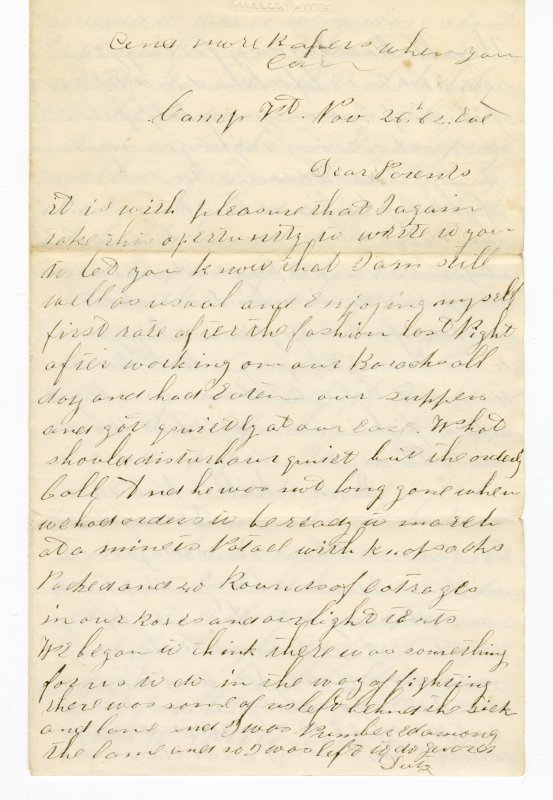 Cend more Papers when you
Can
Camp Vt. Nov. 26th 62. Eve
Dear Parents
it is with pleasure that I again
take this opertunity to write to you
to let you know that I am still
well as usual and Enjoying myself
first rate after the fashion last Night
after working on our Barachs all
day and had Eaten our suppers
and got quietly at our ease. What
should disturb our quiet but the orderly
Call And he was not long gone when
we had orders to be ready to march
at a minets Notace with knapsachs
Packed and 40 Rounds of Catrages
in our Boxes and our light tents
We began to think there was something
for us to do in the way of fighting
there was some of us left behind the Sick
and lame and I was Numbered among
the lame and so I was left to do
Duty